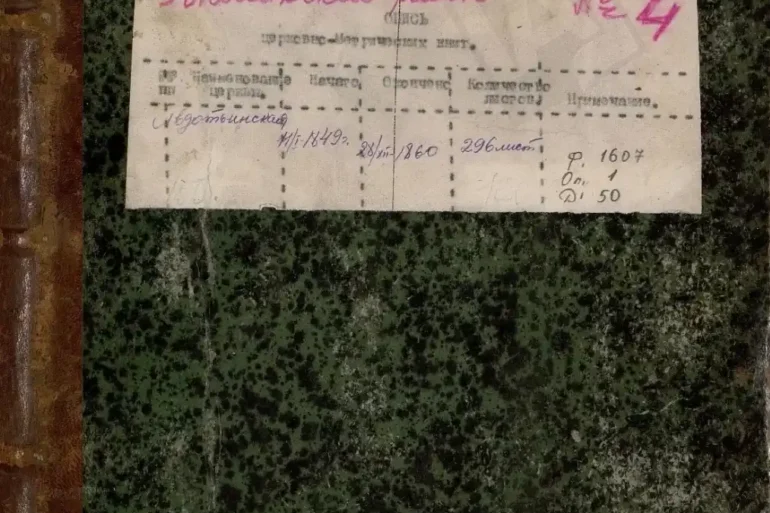 № 4
ОПИСЬ
церковно-метрических книг.
Наименование Начато Окончено Количество
церкви. листов. Примечание.
11/I-1849г. 28/XII-1860 296 лист. Ф. 1607
Оп. 1
Д. 50